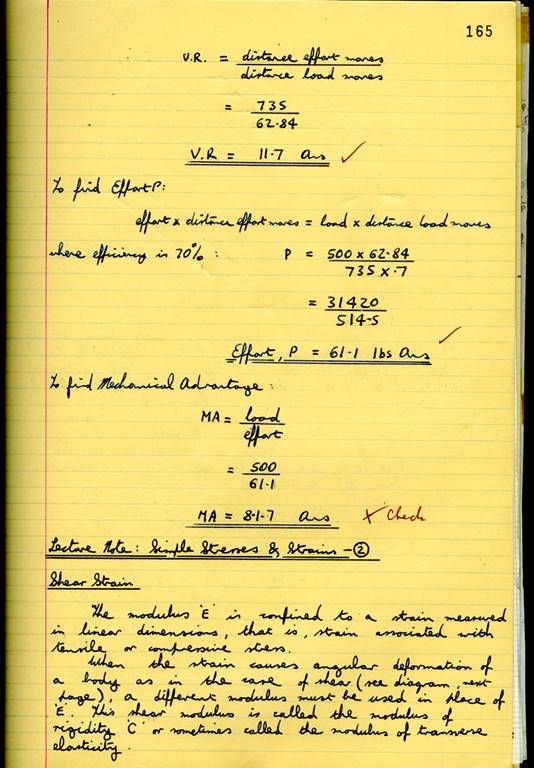 165
V.R. = distance effort moves
distance load moves
= 735
62.84
V.R = 11.7 Ans ✓
To find Effort P:
effort x distance effort moves = load x distance load moves
where efficiency is 70% : P = 500 x 62.84
735 x .7
= 31420
514.5
Effort, P = 61.1 lbs Ans ✓
To find Mechanical Advantage:
MA = load
effort
= 500
61.1
MA = 8.1.7 Ans X Check
Lecture Note: Simple Stresses & Strains - ②
Shear Strain
The modulus 'E' is confined to a strain measured
in linear dimensions, that is, strain associated with
tensile or compressive stress.
When the strain causes angular deformation of
a body as in the case of shear (see diagram, next
page), a different modulus must be used in place of
'E'. This shear modulus is called the modulus of
rigidity 'C' or sometimes called the modulus of transverse
elasticity.